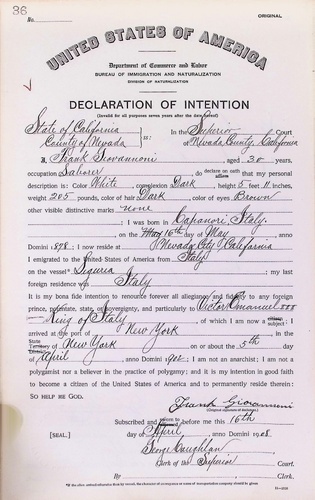 36
No.
ORIGINAL
UNITED STATES OF AMERICA
Department of Commerce and Labor
BUREAU OF IMMIGRATION AND NATURALIZATION
DIVISION OF NATURALIZATION
DECLARATION OF INTENTION
(Invalid for all purposes seven years after the date hereof)
State of California
County of Nevada
ss:
In the Superior Court
of Nevada County, California
I, Frank Giovannoni, aged 30 years,
occupation Laborer, do declare on oath that my personal
description is: Color White, complexion Dark, height 5 feet 11 inches,
weight 205 pounds, color of hair Dark, color of eyes Brown
other visible distinctive marks none
; I was born in Capanori Italy
on the 16th day of May, anno
Domini 1878; I now reside at Nevada City, California
I emigrated to the United States of America from Italy
on the vessel Liguria; my last
foreign residence was Italy
It is my bona fide intention to renounce forever all allegiance and fidelity to any foreign
prince, potentate, state, or sovereignty, and particularly to Victor Emanuel III
King of Italy, of which I am now a subject; I
arrived at the port of New York, in the
State Territory District of New York on or about the 5th day
of April, anno Domini 190; I am not an anarchist; I am not a
polygamist nor a believer in the practice of polygamy; and it is my intention in good faith
to become a citizen of the United States of America and to permanently reside therein:
SO HELP ME GOD.
Frank Giovannoni
(Original signature of declarant.)
Subscribed and sworn to before me this 16th
[SEAL.] day of April, anno Domini 1908
George Caughlan
Clerk of the Superior Court.
By, Clerk.